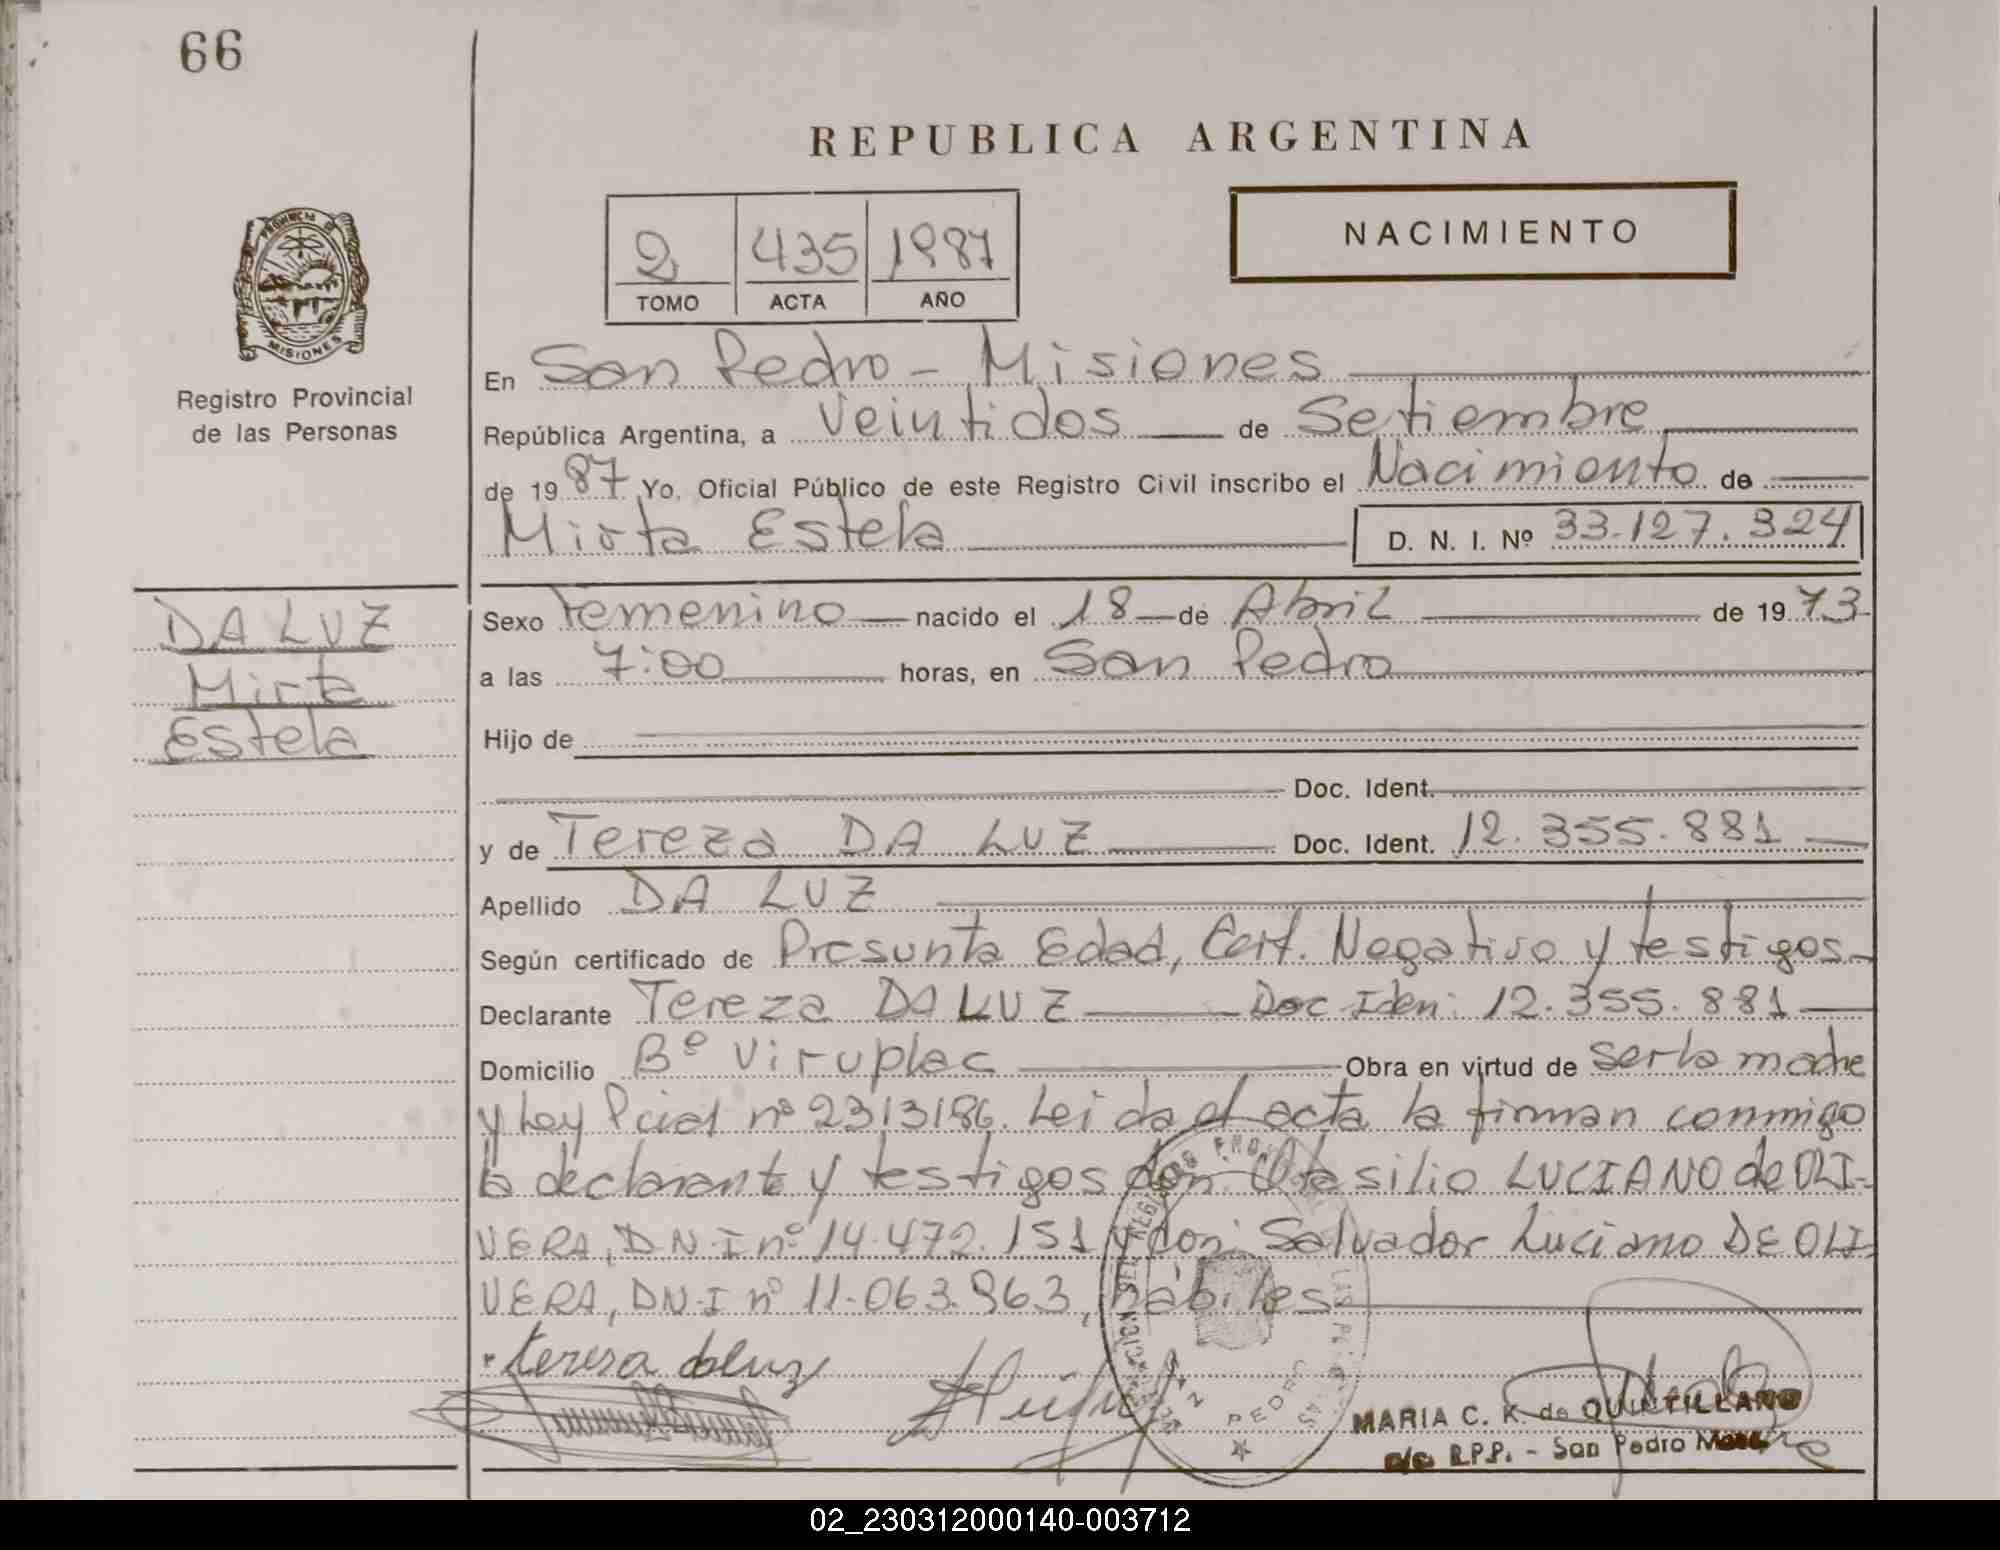 66
REPUBLICA ARGENTINA
PROVINCIA DE
MISIONES
Registro Provincial
de las Personas
2 435 1987
TOMO ACTA AÑO
NACIMIENTO
En San Pedro - Misiones
República Argentina, a Veintidos de Setiembre
de 1987 Yo, Oficial Público de este Registro Civil inscribo el Nacimiento de
Mirta Estela D. N. I. Nº 33.127.324
DA LUZ
Mirta
Estela
Sexo Femenino nacido el 18 de Abril de 1973
a las 7:00 horas, en San Pedro
Hijo de
Doc. Ident.
y de Tereza DA LUZ Doc. Ident. 12.355.881
Apellido DA LUZ
Según certificado de Presunta Edad, Cert. Negativo y testigos
Declarante Tereza DA LUZ Doc Iden: 12.355.881
Domicilio Bº Viruplac Obra en virtud de ser la madre
y Ley Pcial nº 2313/86. Leida el acta la firman conmigo
la declarante y testigos don: Otasilio LUCIANO de OLI-
VERA, D.N.I nº 14.472.151 y don: Salvador Luciano DE OLI-
VERA, D.N.I nº 11.063.963, hábiles
tereza daluz
SAN PEDRO
MARIA C. K. de QUINTILLANO
R.P.P. - San Pedro
02_230312000140-003712